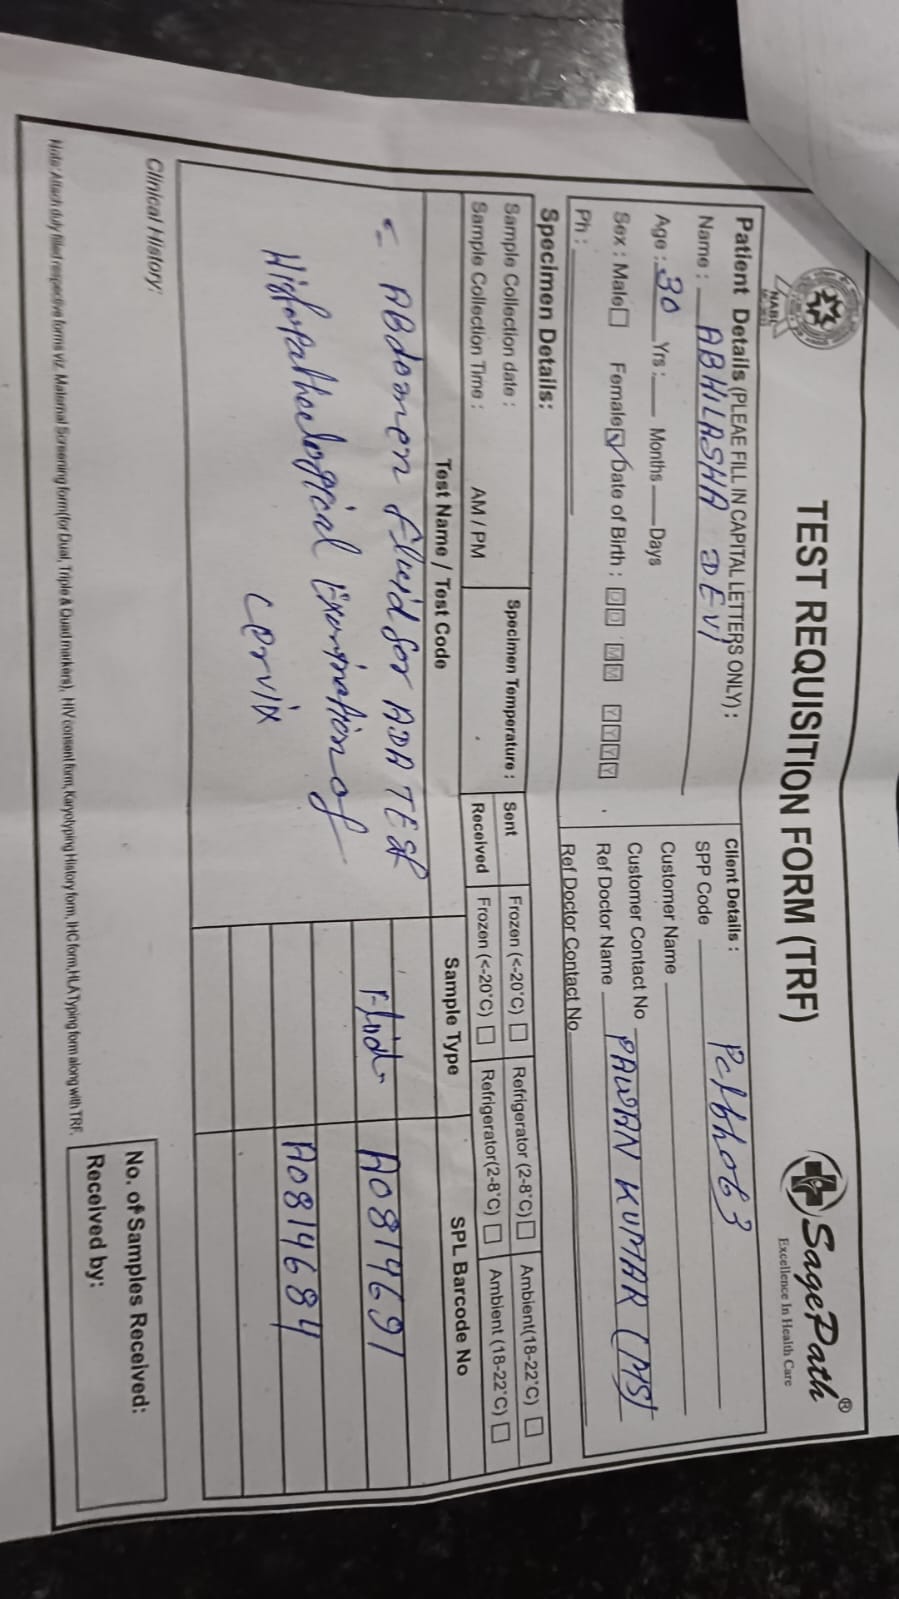 TEST REQUISITION FORM (TRF)
NABL
SagePath®
Excellence In Health Care
Patient Details (PLEAE FILL IN CAPITAL LETTERS ONLY) :
Name : ABHILASHA DEVI
Age : 30 Yrs : Months Days
Sex : Male Female Date of Birth : D D M M Y Y Y Y
Ph :
Client Details :
SPP Code
Customer Name
Customer Contact No
Ref Doctor Name PAWAN KUMAR (MS)
Ref Doctor Contact No
Specimen Details:
Sample Collection date :
Sample Collection Time : AM / PM
Specimen Temperature :
Sent Frozen (<-20°C) Refrigerator (2-8°C) Ambient(18-22°C)
Received Frozen (<-20°C) Refrigerator(2-8°C) Ambient (18-22°C)
Test Name / Test Code Sample Type SPL Barcode No
ABdomen Fluid for ADA TEST Fluid A0814691
Histopathological Examination of A0814684
Cervix
Clinical History:
No. of Samples Received:
Received by:
Note: Attach duly filled respective forms viz. Maternal Screening form(for Dual, Triple & Quad markers), HIV consent form, Karyotyping History form, IHC form,HLA Typing form along with TRF.